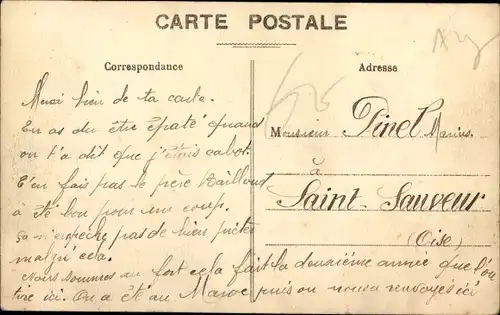 CARTE POSTALE
Correspondance
Merci bien de ta carte.
En as du être épaté quand
on t'a dit que j'étais cabot.
T'en fais pas le père
a été bon pour un coup.
Ça n'empêche pas de bien
malgré cela.
nous sommes au fort cela fait la deuxième année que l'on
tire ici. On a été au Maroc puis on nous a renvoyés ici
Adresse
Monsieur Pinel Marius
à
Saint-Sauveur
(Oise)